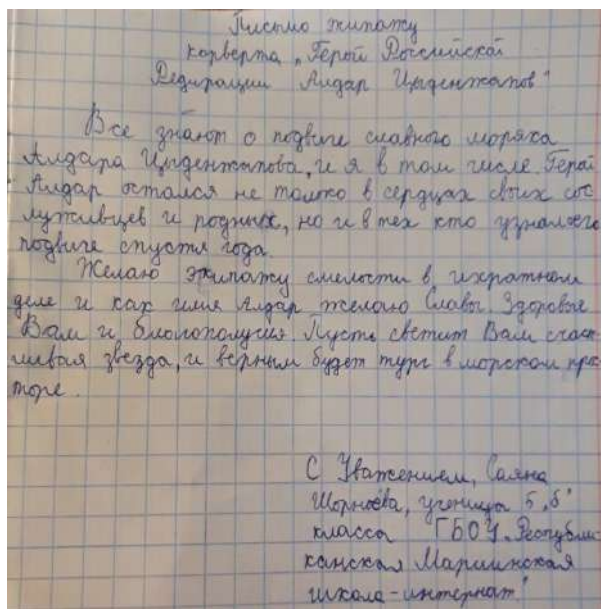 Письмо экипажу
корверта „Герой Российской
Федирации Алдар Цыденжапов"
Все знают о подвиге славного моряка
Алдара Цыденжапова, и я в том числе. Герой
Алдар остался не только в сердцах своих сос
луживцев и родных, но и в тех кто узнал о его
подвиге спустя года.
Желаю экипажу смелости в их ратном
деле и как имя Алдар желаю Славы. Здоровье
Вам и благополучия. Пусть светит Вам счаст
ливая звезда, и верным будет путь в морском прос
торе.
С Уважением, Саяна
ученица 5 „б"
класса ГБОУ „Республи-
канская Мариинская
школа-интернат"